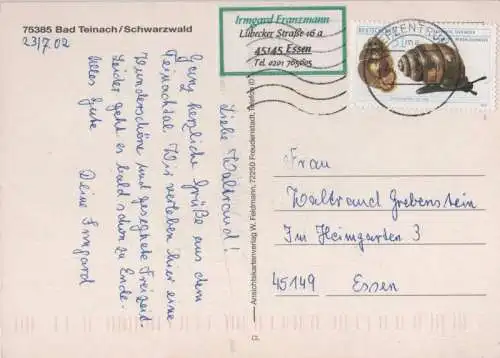 75385 Bad Teinach/Schwarzwald
23/7.02
Liebe Waltraud!
Ganz herzliche Grüße aus dem
Teinachtal. Wir verleben hier eine
wunderschöne und gesegnete Freizeit.
Leider geht es bald schon zu Ende.
Alles Gute
Deine Irmgard
Ansichtskartenverlag W. Feldmann, 72250 Freudenstadt,
Irmgard Franzmann
Lübecker Straße 16 a
45145 Essen
Tel. 0201 765625
Frau
Waltraud Grebenstein
Im Heimgarten 3
45149 Essen